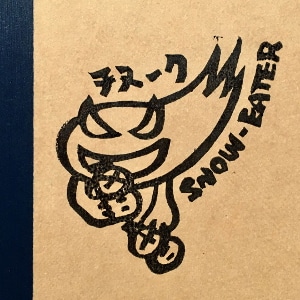 チヌーク
SNOW-EATER